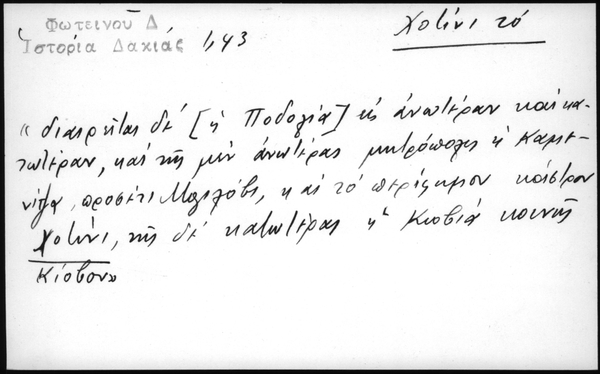 Φωτεινού Δ
Ἱστορία Δακιάς 1,43
Χοτίνι τό
«διαιρεῖται δέ [ἡ Ποδολία] εἰς ἀνωτέραν καί κα-
τωτέραν, καί τῆς μέν ἀνωτέρας μητρόπολις ἡ Καμε-
νίτζα, προσέτι καί τό περίφημον κάστρον
Χοτίνι, τῆς δέ κατωτέρας ἡ Κιοβιά κοινῆς
Κίοβον»